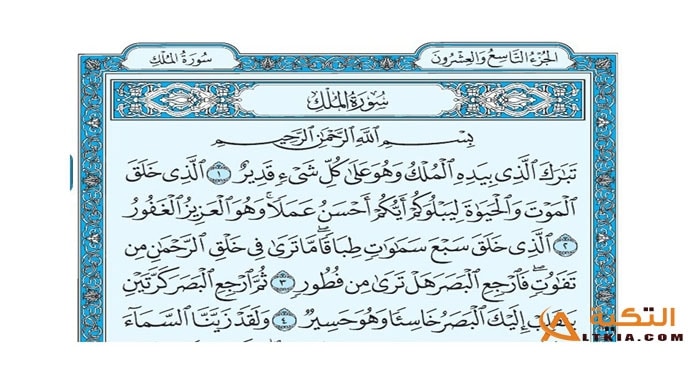 سُورَةُ المُلْكِ
الجُزْءُ التَّاسِعُ وَالعِشْرُونَ
سُورَةُ المُلْكِ
بِسْمِ اللَّهِ الرَّحْمَٰنِ الرَّحِيمِ
تَبَٰرَكَ ٱلَّذِى بِيَدِهِ ٱلْمُلْكُ وَهُوَ عَلَىٰ كُلِّ شَىْءٍ قَدِيرٌ ١ ٱلَّذِى خَلَقَ
ٱلْمَوْتَ وَٱلْحَيَوٰةَ لِيَبْلُوَكُمْ أَيُّكُمْ أَحْسَنُ عَمَلًا ۚ وَهُوَ ٱلْعَزِيزُ ٱلْغَفُورُ
٢ ٱلَّذِى خَلَقَ سَبْعَ سَمَٰوَٰتٍ طِبَاقًا ۖ مَّا تَرَىٰ فِى خَلْقِ ٱلرَّحْمَٰنِ مِن
تَفَٰوُتٍ ۖ فَٱرْجِعِ ٱلْبَصَرَ هَلْ تَرَىٰ مِن فُطُورٍ ٣ ثُمَّ ٱرْجِعِ ٱلْبَصَرَ كَرَّتَيْنِ
يَنقَلِبْ إِلَيْكَ ٱلْبَصَرُ خَاسِئًا وَهُوَ حَسِيرٌ ٤ وَلَقَدْ زَيَّنَّا ٱلسَّمَآءَ
التكية
ALTKIA.COM